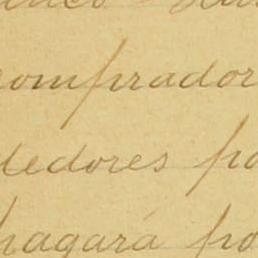 comprador
dedores po
pagará po